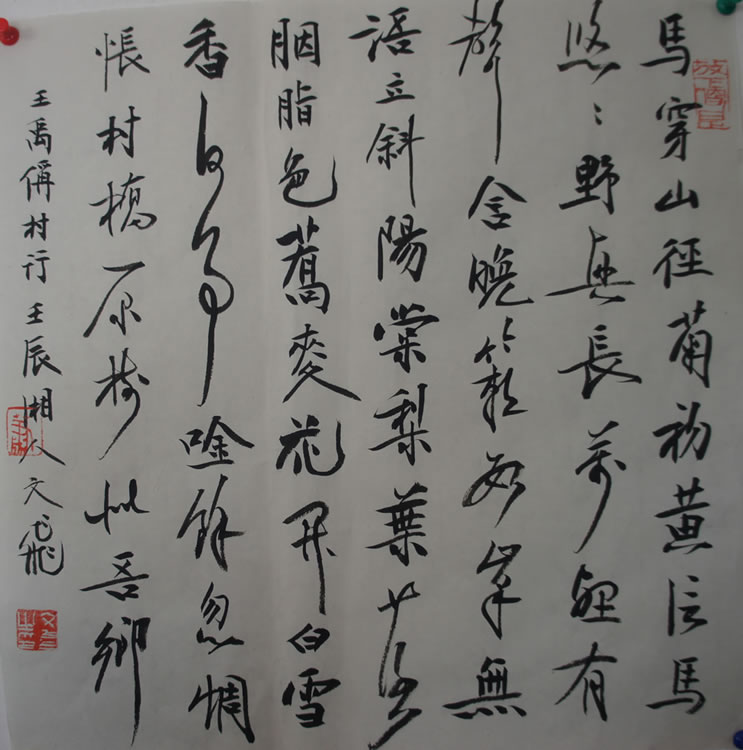 馬穿山徑菊初黃信馬
悠〻野興長萬壑有
聲含晚籟數峯無
語立斜陽棠梨葉落
胭脂色蕎麥花開白雪
香何事唫餘忽惆
悵村橋原樹似吾鄉
王禹偁村行壬辰湘人文飛